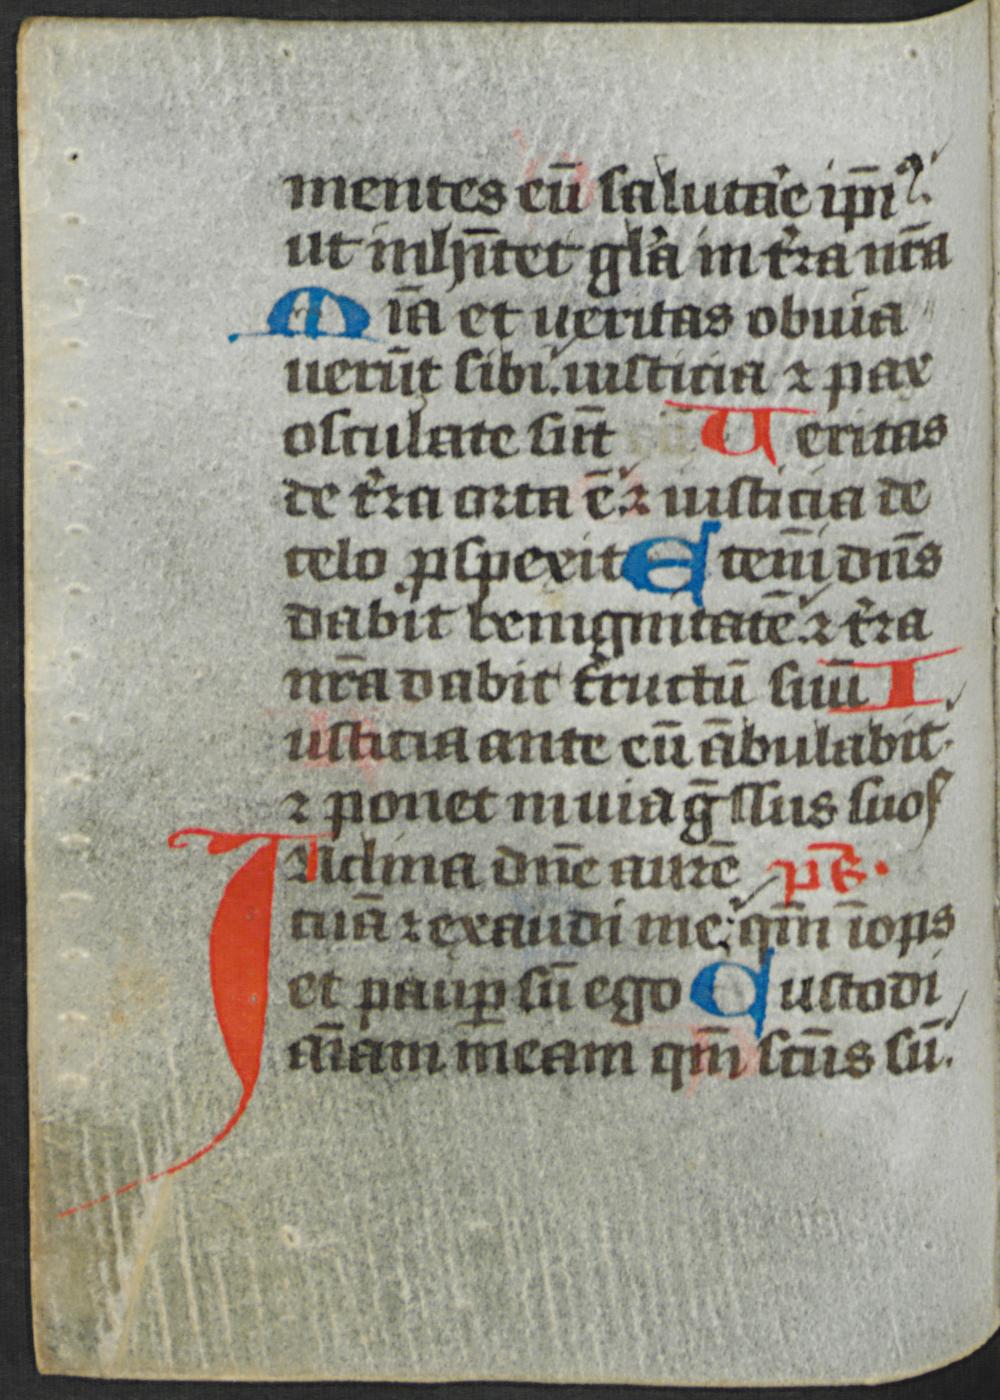 mentes eū salutar̄e ip̄i᷒
ut inhītet gl̓a in tr̓ra nr̄a
Mīa et ueritas obuia
uerūt sibi. iusticia ⁊ pax
osculate sūt Ueritas
de tr̓ra orta ē. ⁊ iusticia de
celo ꝓspexit Etenī dn̄s
dabit benignitatē. ⁊ tr̓ra
nr̄a dabit fructū suū I
usticia ante eū ābulabit.
⁊ ponet in uia ḡssus suos
INclina dn̄e aurē p̄s.
tuā ⁊ exaudi me: qm̄ īops
et paup̲ sū ego Custodi
aīam meam qm̄ sc̄us sū.